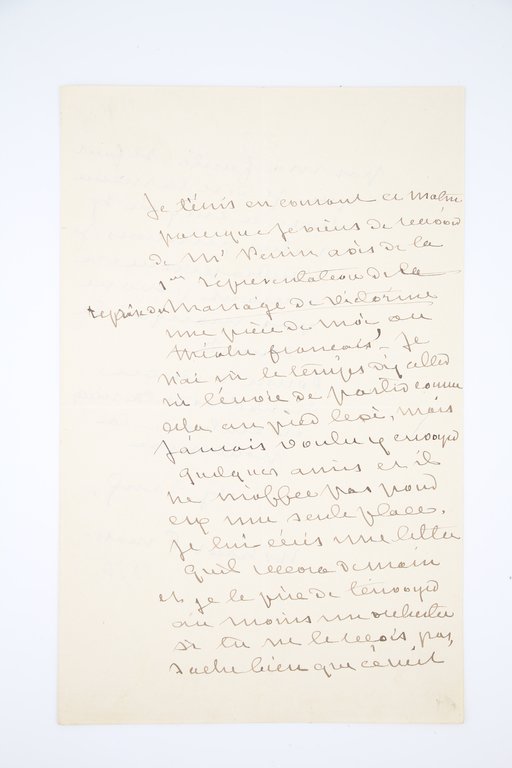 Je t'écris en courant ce matin
parceque je viens de recevoir
de Mr Perrin avis de la
1ère représentation de la
reprise du Mariage de Victorine
une pièce de moi au
théatre français. Je
n'ai ni le temps d'y aller
ni l'envie de partir comme
cela au pied levé, mais
j'aurais voulu y envoyer
quelques amis et il
ne m'offre pas pour
eux une seule place.
Je lui écris une lettre
qu'il recevra demain
et je le prie de t'envoyer
au moins un orchestre
si tu ne le reçois pas,
sache bien que c'est